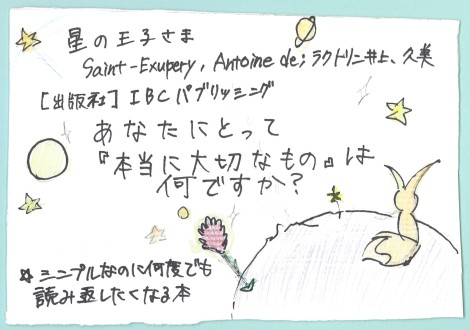 星の王子さま
Saint-Exupery, Antoine de; ラクトリーニ井上、久美
[出版社] IBCパブリッシング
あなたにとって
『本当に大切なもの』は
何ですか?
☆シンプルなのに何度でも
読み返したくなる本